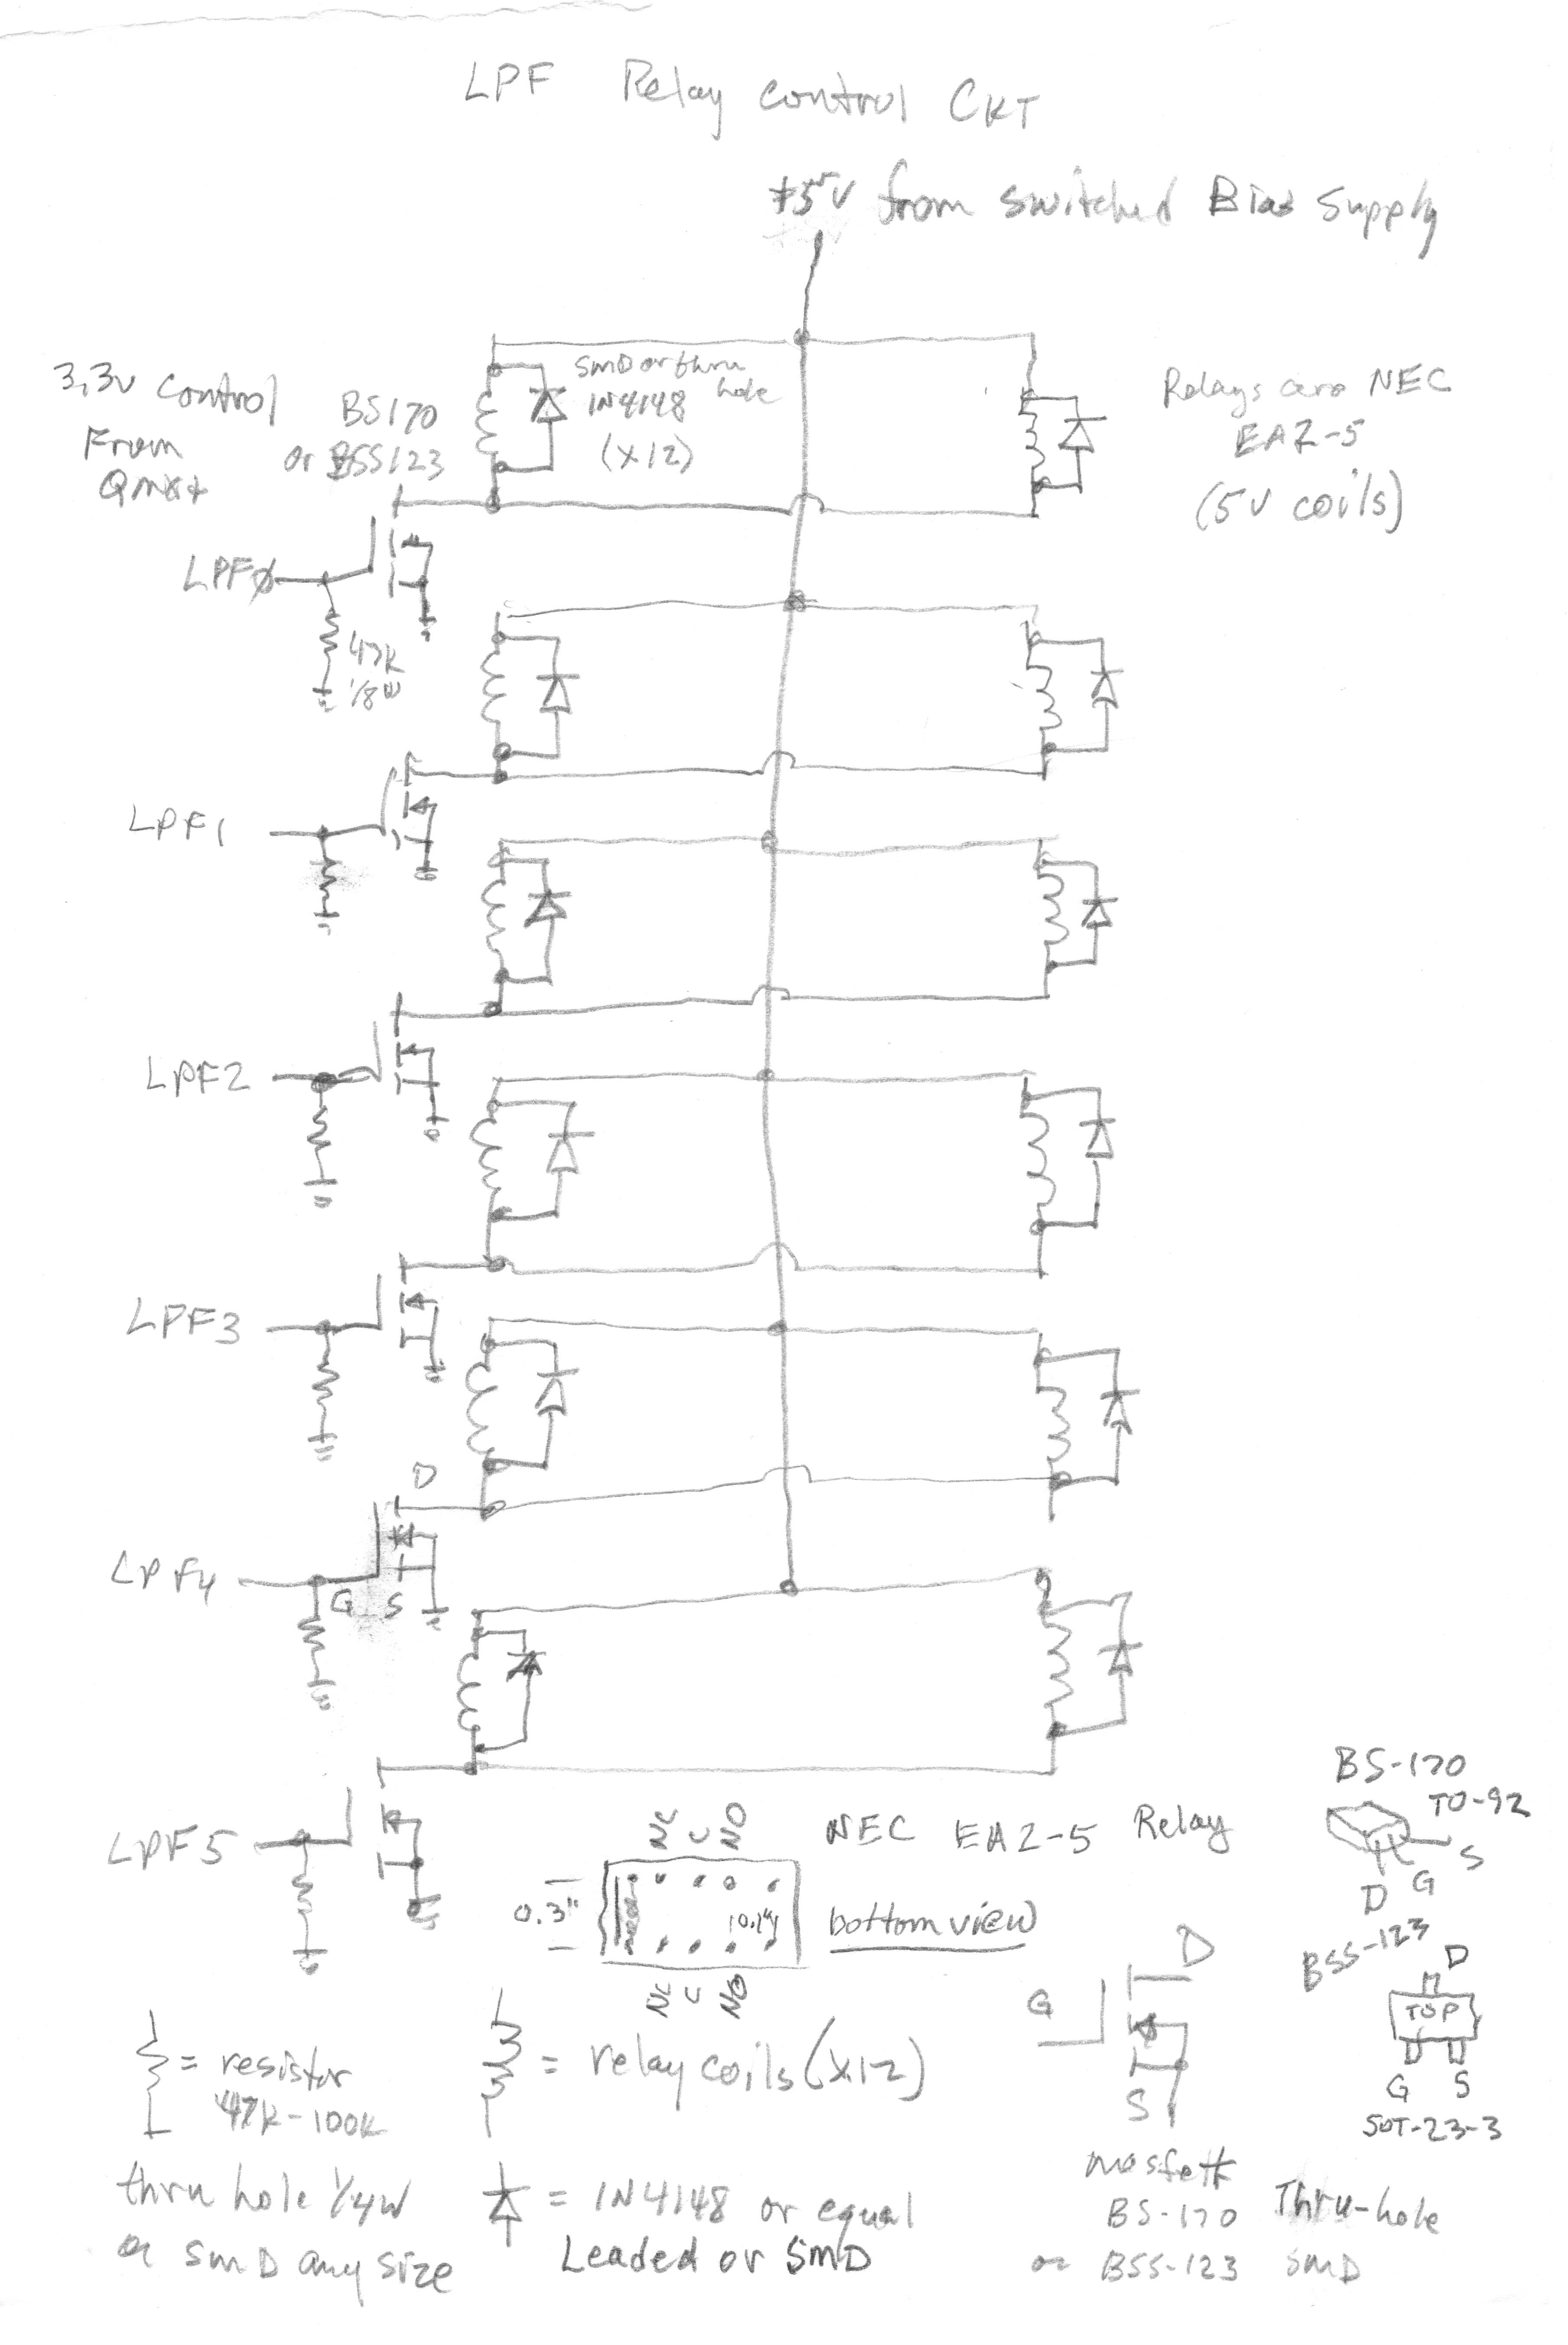 LPF Relay control CKT
+5V from switched Bias Supply
3.3v control
From
Qmx+
BS170
or BSS123
SMD or thru
hole
1N4148
(X12)
Relays are NEC
EA2-5
(5V coils)
LPFØ
47K
1/8W
LPF1
LPF2
LPF3
D
LPF4
G S
LPF5
NC C NO
NEC EA2-5 Relay
0.3"
0.1"
bottom view
NC C NO
BS-170
TO-92
D G S
BSS-123
D
TOP
G S
SOT-23-3
G
D
S
= resistor
47K-100K
thru hole 1/4W
or SMD any size
= relay coils (X12)
= 1N4148 or equal
Leaded or SMD
mosfett
BS-170 Thru-hole
or BSS-123 SMD